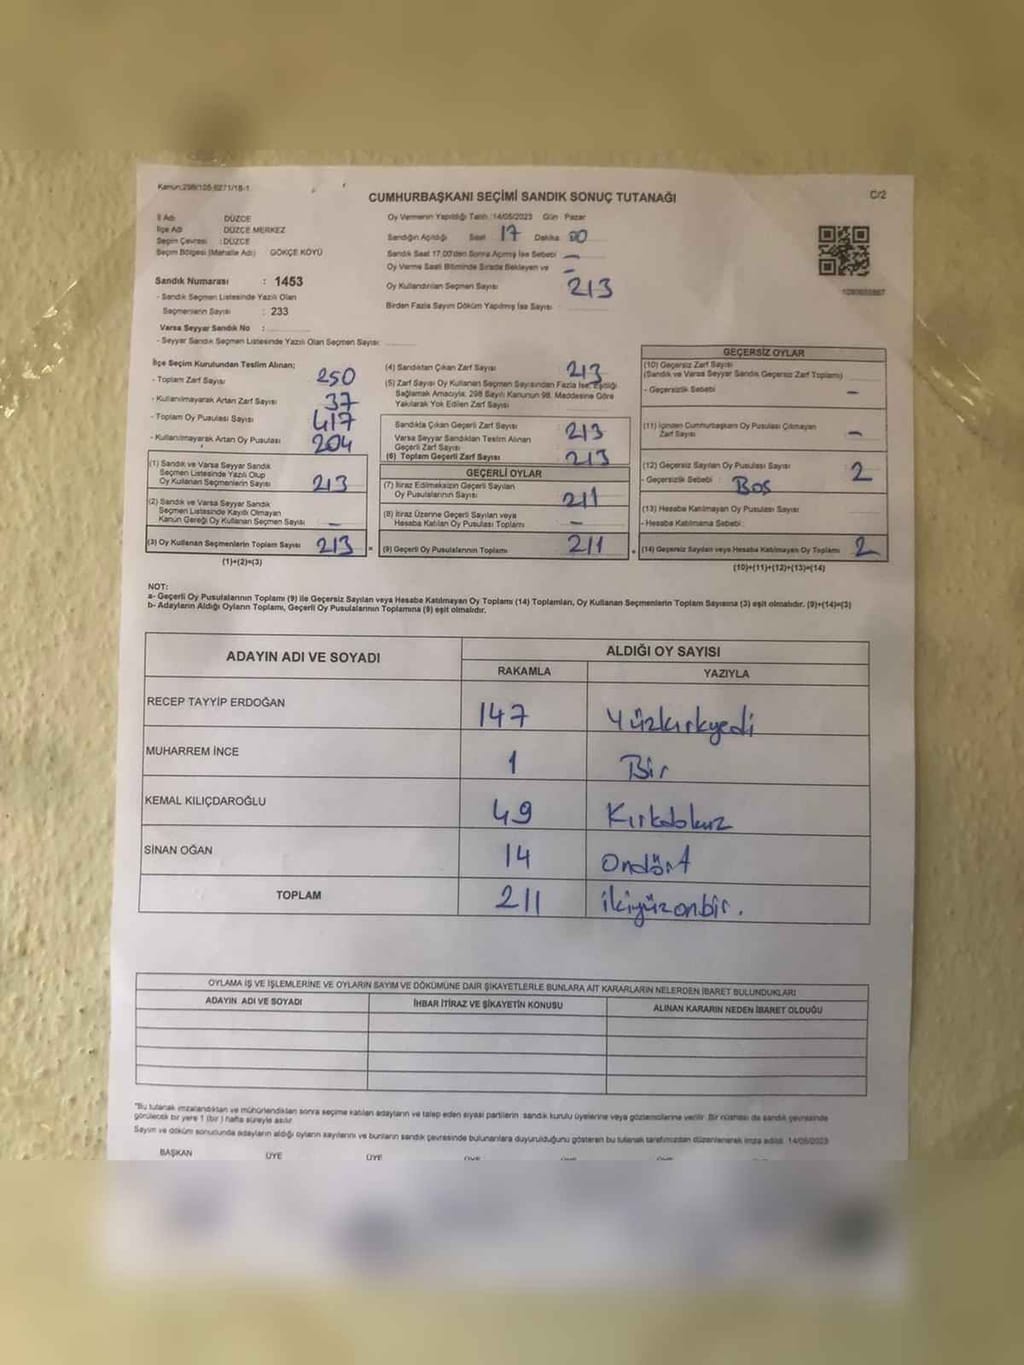 Kanun:298/105-6271/18-1
C/2
CUMHURBAŞKANI SEÇİMİ SANDIK SONUÇ TUTANAĞI
İl Adı DÜZCE
İlçe Adı DÜZCE MERKEZ
Seçim Çevresi : DÜZCE
Seçim Bölgesi (Mahalle Adı) GÖKÇE KÖYÜ
Sandık Numarası : 1453
- Sandık Seçmen Listesinde Yazılı Olan
Seçmenlerin Sayısı : 233
Varsa Seyyar Sandık No :
- Seyyar Sandık Seçmen Listesinde Yazılı Olan Seçmen Sayısı
Oy Vermenin Yapıldığı Tarih :14/05/2023 Gün Pazar
Sandığın Açıldığı Saat 17 Dakika 00
Sandık Saat 17.00'den Sonra Açılmış İse Sebebi —
Oy Verme Saati Bitiminde Sırada Bekleyen ve —
Oy Kullandırılan Seçmen Sayısı 213
Birden Fazla Sayım Döküm Yapılmış İse Sayısı
İlçe Seçim Kurulundan Teslim Alınan;
- Toplam Zarf Sayısı 250
- Kullanılmayarak Artan Zarf Sayısı 37
- Toplam Oy Pusulası Sayısı 417
- Kullanılmayarak Artan Oy Pusulası 204
(1) Sandık ve Varsa Seyyar Sandık
Seçmen Listesinde Yazılı Olup
Oy Kullanan Seçmenlerin Sayısı 213
(2) Sandık ve Varsa Seyyar Sandık
Seçmen Listesinde Kayıtlı Olmayan
Kanun Gereği Oy Kullanan Seçmen Sayısı —
(3) Oy Kullanan Seçmenlerin Toplam Sayısı 213 =
(1)+(2)=(3)
(4) Sandıktan Çıkan Zarf Sayısı 213
(5) Zarf Sayısı Oy Kullanan Seçmen Sayısından Fazla İse, Eşitliği
Sağlamak Amacıyla, 298 Sayılı Kanunun 98. Maddesine Göre
Yakılarak Yok Edilen Zarf Sayısı
Sandıkta Çıkan Geçerli Zarf Sayısı 213
Varsa Seyyar Sandıktan Teslim Alınan
Geçerli Zarf Sayısı
(6) Toplam Geçerli Zarf Sayısı 213
GEÇERLİ OYLAR
(7) İtiraz Edilmeksizin Geçerli Sayılan
Oy Pusulalarının Sayısı 211
(8) İtiraz Üzerine Geçerli Sayılan veya
Hesaba Katılan Oy Pusulası Toplamı —
(9) Geçerli Oy Pusulalarının Toplamı 211 +
GEÇERSİZ OYLAR
(10) Geçersiz Zarf Sayısı
(Sandık ve Varsa Seyyar Sandık Geçersiz Zarf Toplamı)
- Geçersizlik Sebebi —
(11) İçinden Cumhurbaşkanı Oy Pusulası Çıkmayan
Zarf Sayısı —
(12) Geçersiz Sayılan Oy Pusulası Sayısı 2
- Geçersizlik Sebebi : Boş
(13) Hesaba Katılmayan Oy Pusulası Sayısı
- Hesaba Katılmama Sebebi
(14) Geçersiz Sayılan veya Hesaba Katılmayan Oy Toplamı 2
(10)+(11)+(12)+(13)=(14)
NOT:
a- Geçerli Oy Pusulalarının Toplamı (9) ile Geçersiz Sayılan veya Hesaba Katılmayan Oy Toplamı (14) Toplamları, Oy Kullanan Seçmenlerin Toplam Sayısına (3) eşit olmalıdır. (9)+(14)=(3)
b- Adayların Aldığı Oyların Toplamı, Geçerli Oy Pusulalarının Toplamına (9) eşit olmalıdır.
ADAYIN ADI VE SOYADI ALDIĞI OY SAYISI
RAKAMLA YAZIYLA
RECEP TAYYİP ERDOĞAN 147 Yüzkırkyedi
MUHARREM İNCE 1 Bir
KEMAL KILIÇDAROĞLU 49 Kırkdokuz
SİNAN OĞAN 14 Ondört
TOPLAM 211 ikiyüzonbir.
OYLAMA İŞ VE İŞLEMLERİNE VE OYLARIN SAYIM VE DÖKÜMÜNE DAİR ŞİKAYETLERLE BUNLARA AİT KARARLARIN NELERDEN İBARET BULUNDUKLARI
ADAYIN ADI VE SOYADI İHBAR İTİRAZ VE ŞİKAYETİN KONUSU ALINAN KARARIN NEDEN İBARET OLDUĞU
"Bu tutanak imzalandıktan ve mühürlendikten sonra seçime katılan adayların ve talep eden siyasi partilerin sandık kurulu üyelerine veya gözlemcilerine verilir. Bir nüshası da sandık çevresinde
görülecek bir yere 1 (bir) hafta süreyle asılır
Sayım ve döküm sonucunda adayların aldığı oyların sayılarını ve bunların sandık çevresinde bulunanlara duyurulduğunu gösteren bu tutanak tarafımızdan düzenlenerek imza edildi. 14/05/2023
BAŞKAN ÜYE ÜYE